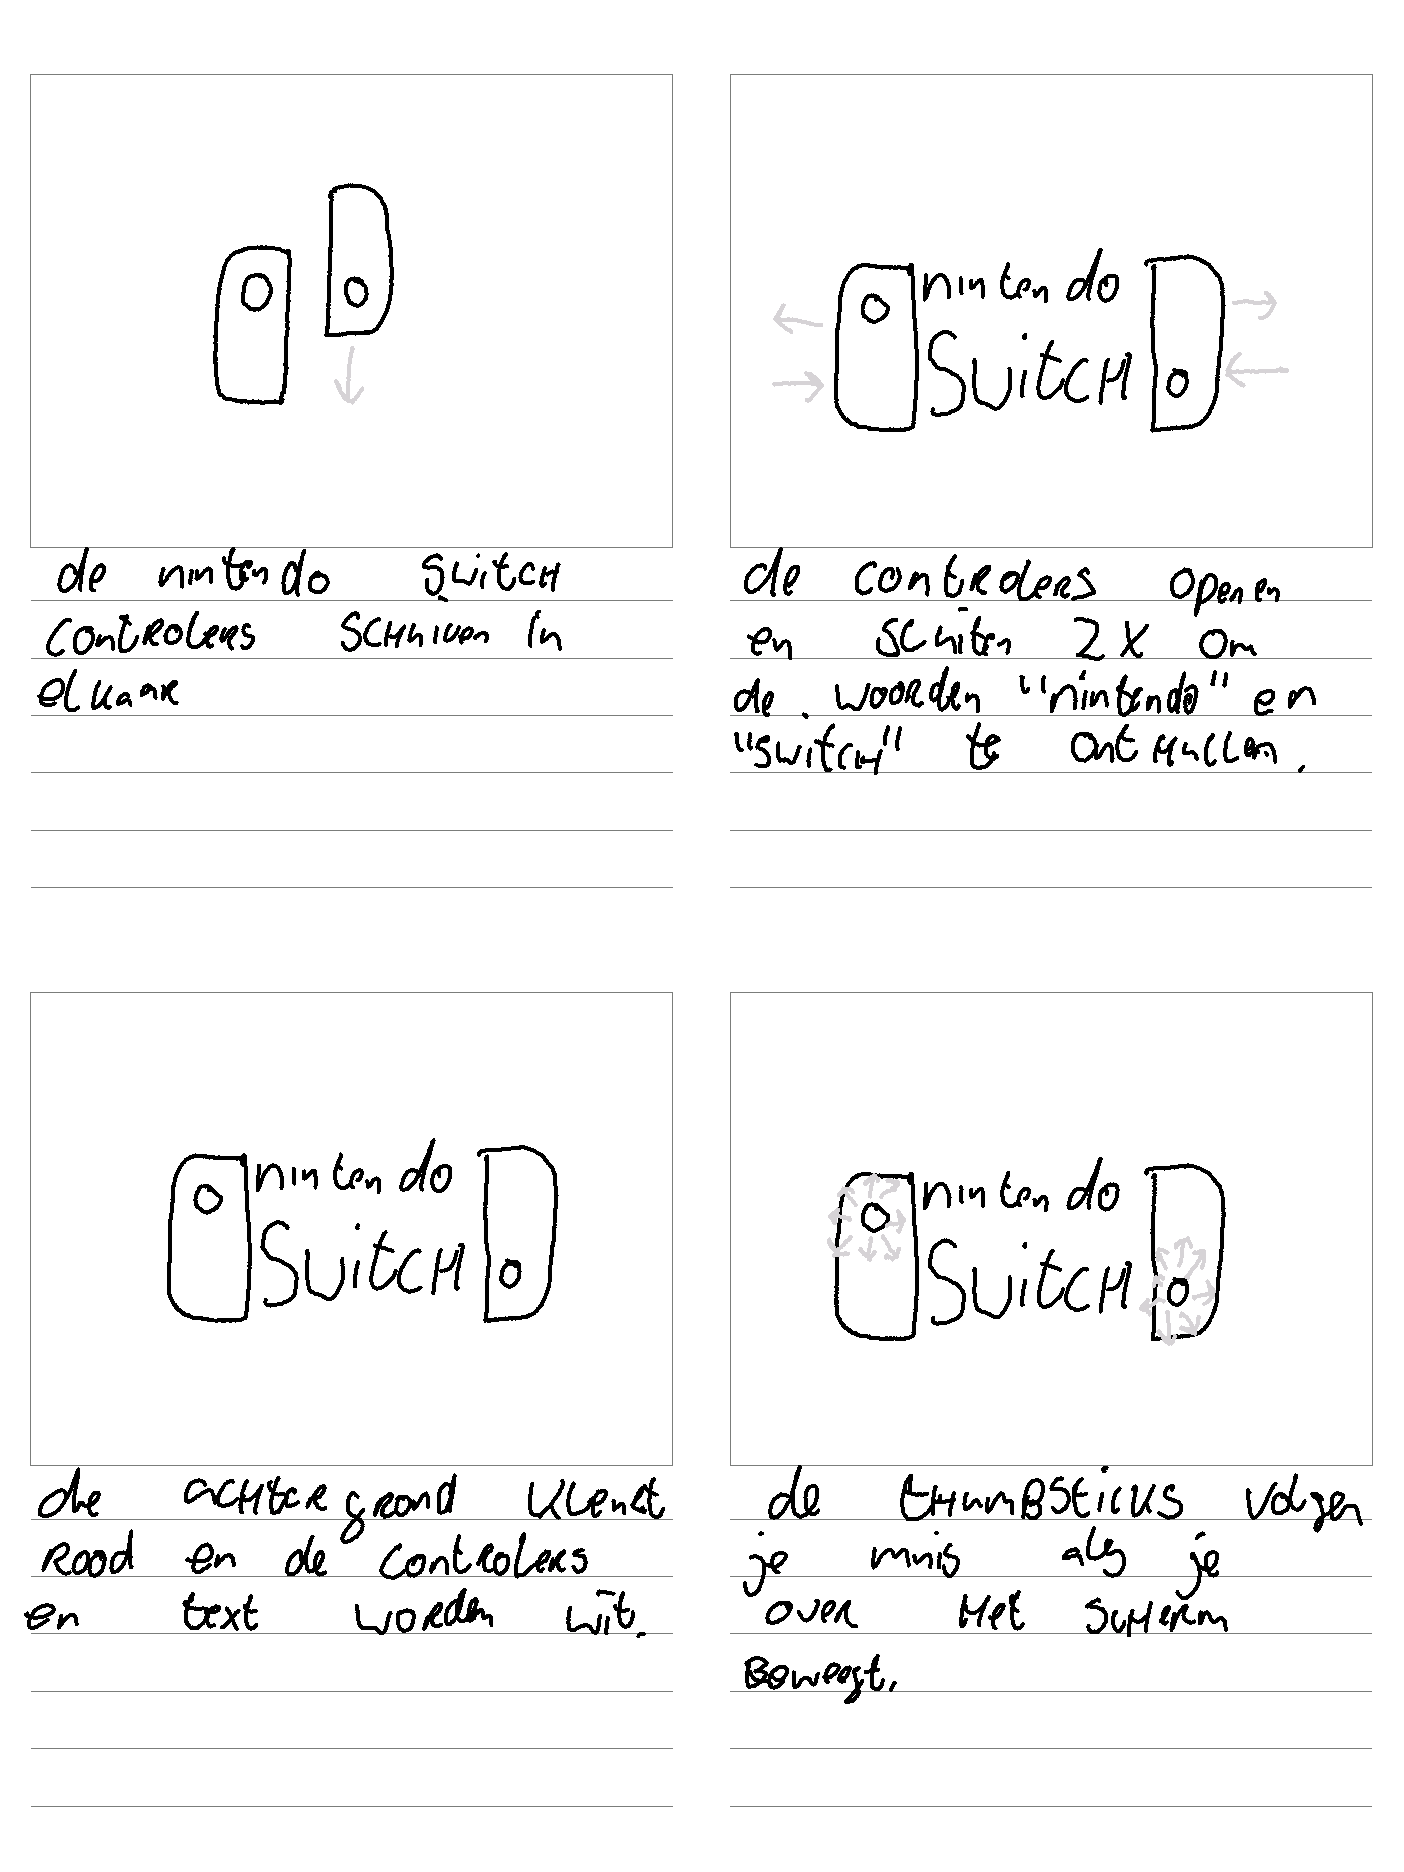 de nintendo SWITCH
CONTROLERS SCHUIVEN IN
elkaar
nintendo
SWITCH
de CONTROLERS openen
en Sluiten 2X om
de woorden "nintendo" en
"SWITCH" te ontHullen.
nintendo
SWITCH
de ACHTERgrond kleurt
Rood en de CONTROLERS
en text worden wit.
nintendo
SWITCH
de tHumBSticks volgen
je muis als je
over Het SCHerm
Beweegt.